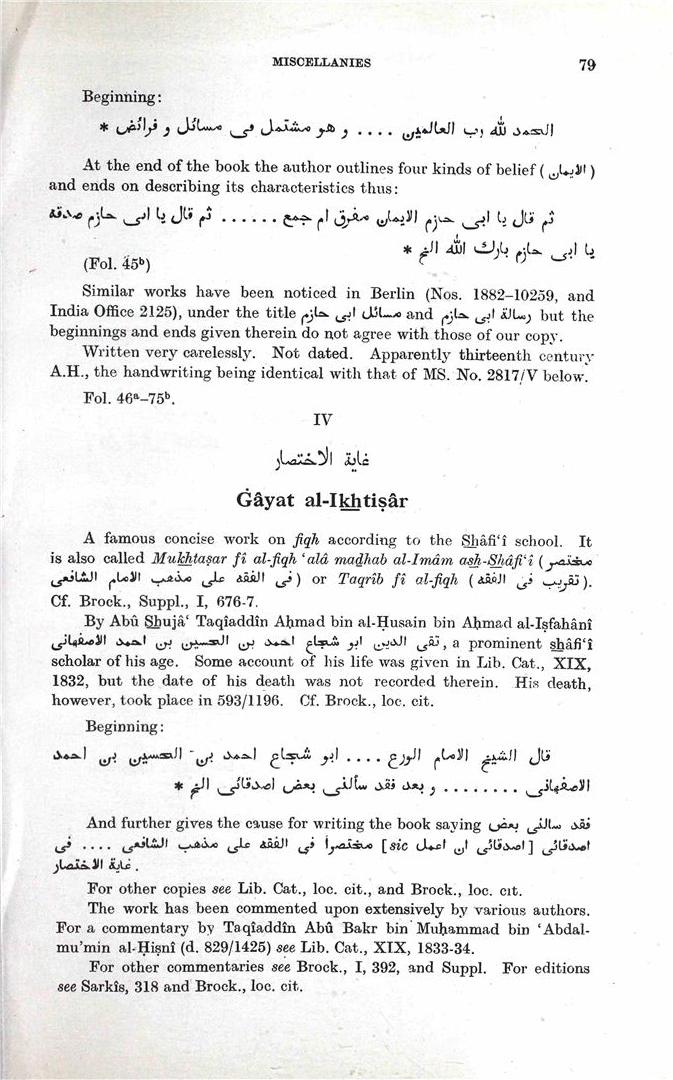 MISCELLANIES 79
Beginning:
الحمد لله رب العالمين .... و هو مشتمل فى مسائل و فرائض *
At the end of the book the author outlines four kinds of belief (الايمان)
and ends on describing its characteristics thus:
ثم قال يا ابى حازم الايمان مفرق ام جمع ...... ثم قال يا ابى حازم صدقة
يا ابى حازم بارك الله الخ *
(Fol. 45ᵇ)
Similar works have been noticed in Berlin (Nos. 1882–10259, and
India Office 2125), under the title مسائل ابى حازم and رسالة ابى حازم but the
beginnings and ends given therein do not agree with those of our copy.
Written very carelessly. Not dated. Apparently thirteenth century
A.H., the handwriting being identical with that of MS. No. 2817/V below.
Fol. 46ᵃ–75ᵇ.
IV
غاية الاختصار
Ġâyat al-Ikhtiṣâr
A famous concise work on fiqh according to the Shâfi‘î school. It
is also called Mukhtaṣar fî al-fiqh ‘alâ madhab al-Imâm ash-Shâfi‘î (مختصر
فى الفقه على مذهب الامام الشافعى) or Taqrîb fî al-fiqh (تقريب فى الفقه).
Cf. Brock., Suppl., I, 676-7.
By Abû Shujâ‘ Taqîaddîn Aḥmad bin al-Ḥusain bin Aḥmad al-Iṣfahânî
تقى الدين ابو شجاع احمد بن الحسين بن احمد الاصفهانى, a prominent shâfi‘î
scholar of his age. Some account of his life was given in Lib. Cat., XIX,
1832, but the date of his death was not recorded therein. His death,
however, took place in 593/1196. Cf. Brock., loc. cit.
Beginning:
قال الشيخ الامام الورع .... ابو شجاع احمد بن الحسين بن احمد
الاصفهانى ........ و بعد فقد سألنى بعض اصدقائى الخ *
And further gives the cause for writing the book saying فقد سالنى بعض
اصدقائى [اصدقائى ان اعمل sic] مختصراً فى الفقه على مذهب الشافعى .... فى
غاية الاختصار.
For other copies see Lib. Cat., loc. cit., and Brock., loc. cit.
The work has been commented upon extensively by various authors.
For a commentary by Taqîaddîn Abû Bakr bin Muḥammad bin ‘Abdal-
mu’min al-Ḥiṣnî (d. 829/1425) see Lib. Cat., XIX, 1833-34.
For other commentaries see Brock., I, 392, and Suppl. For editions
see Sarkîs, 318 and Brock., loc. cit.